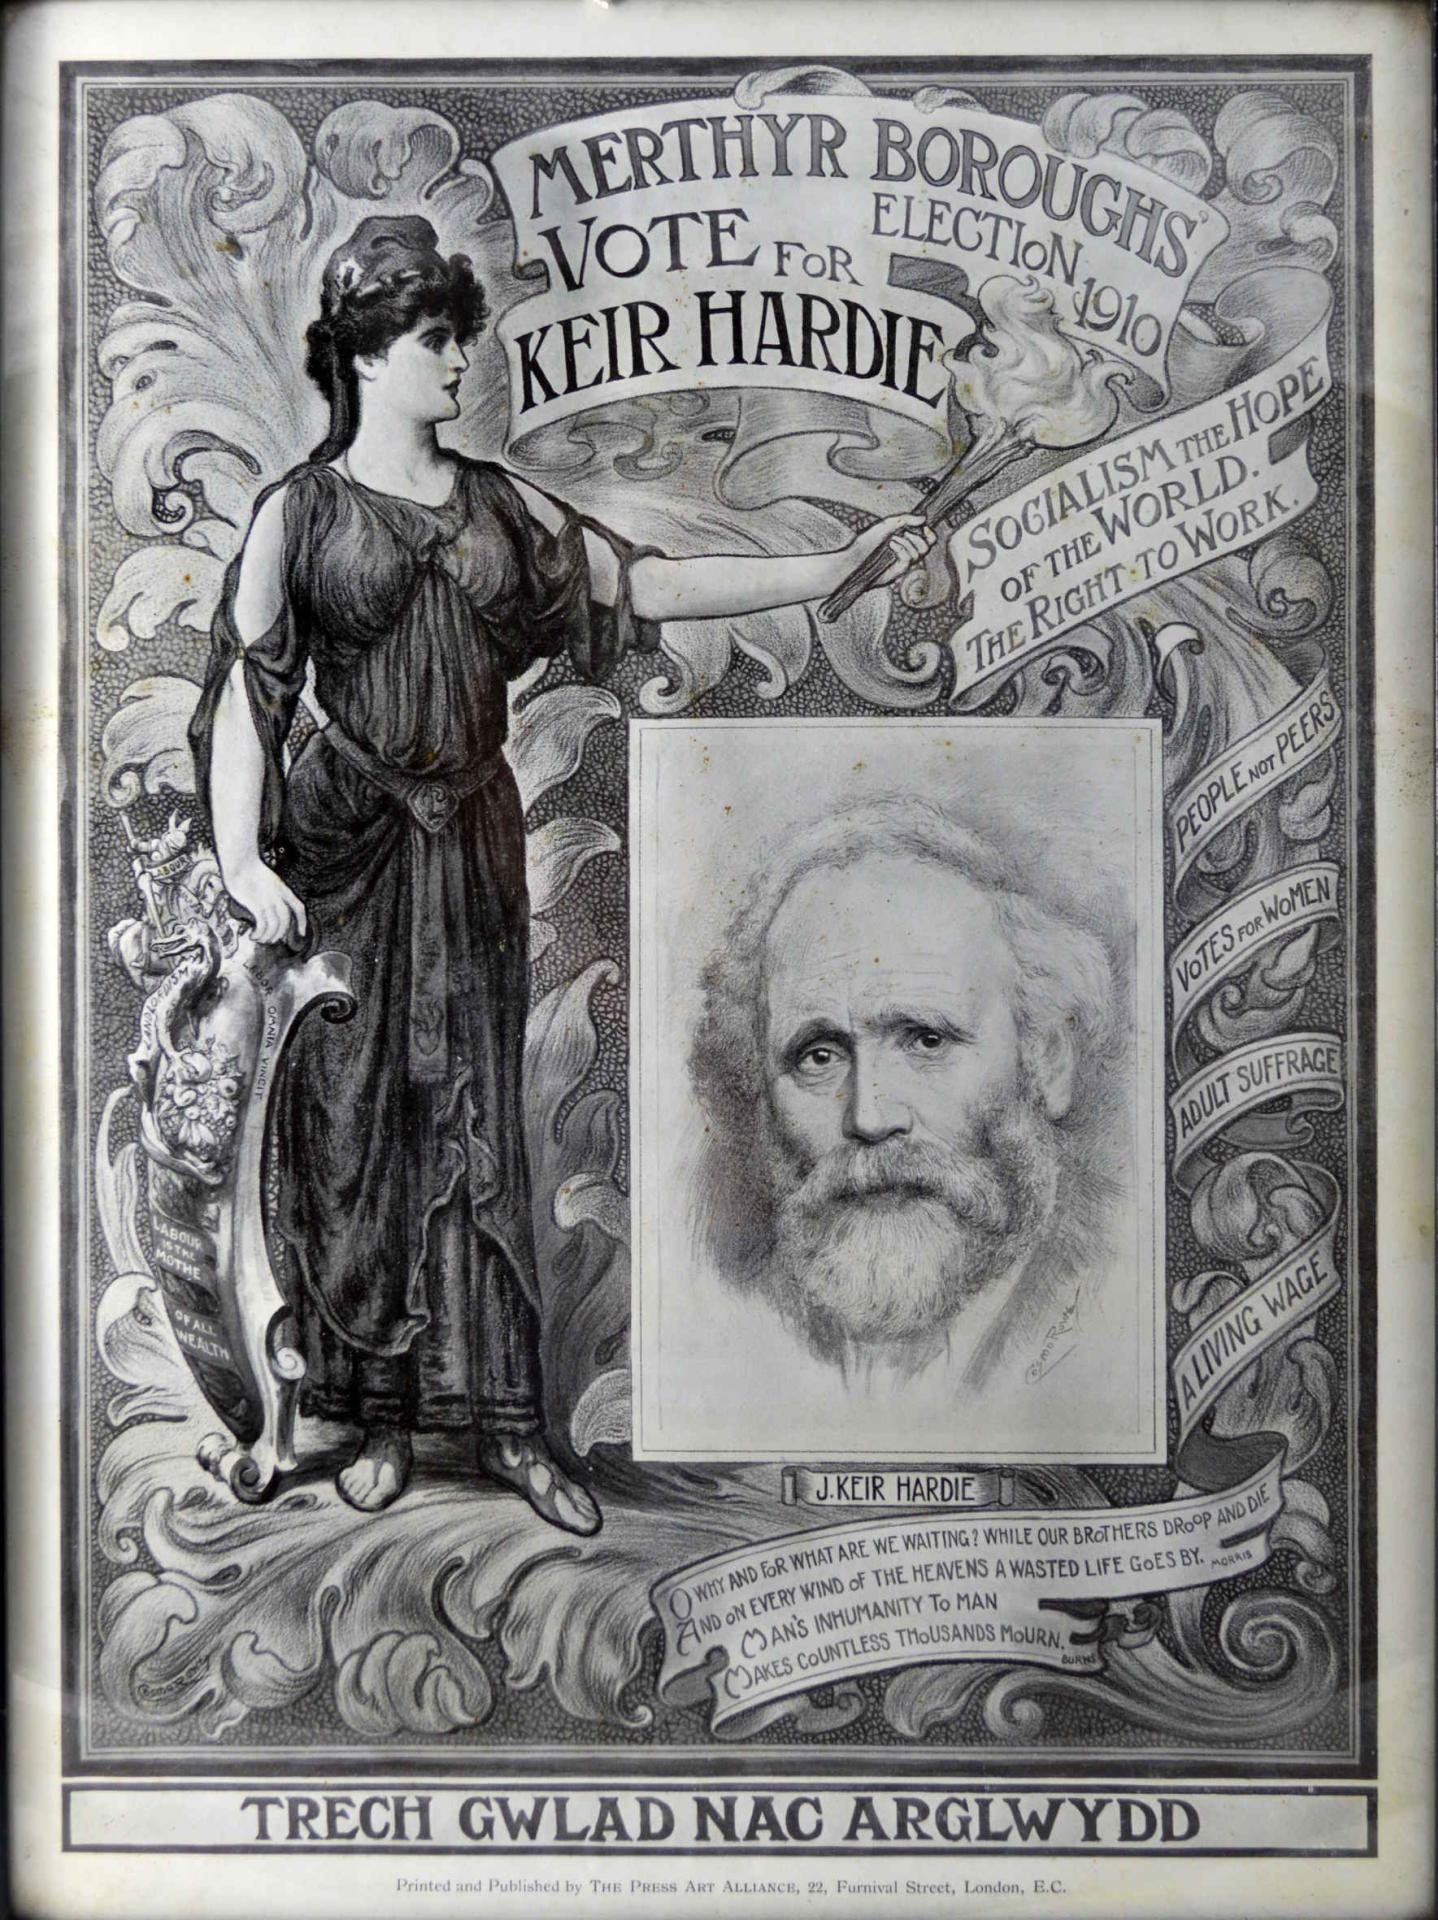 MERTHYR BOROUGHS'
ELECTION 1910
VOTE FOR
KEIR HARDIE
SOCIALISM THE HOPE
OF THE WORLD.
THE RIGHT TO WORK.
PEOPLE NOT PEERS
VOTES FOR WOMEN
ADULT SUFFRAGE
A LIVING WAGE
LABOUR
LANDLORDISM
LABOR OMNIA VINCIT
LABOUR
IS THE
MOTHE
OF ALL
WEALTH
Cosmo Rowe
J. KEIR HARDIE
O WHY AND FOR WHAT ARE WE WAITING? WHILE OUR BROTHERS DROOP AND DIE
AND ON EVERY WIND OF THE HEAVENS A WASTED LIFE GOES BY. MORRIS
MAN'S INHUMANITY TO MAN
MAKES COUNTLESS THOUSANDS MOURN.
BURNS
Cosmo Rowe
TRECH GWLAD NAC ARGLWYDD
Printed and Published by THE PRESS ART ALLIANCE, 22, Furnival Street, London, E.C.